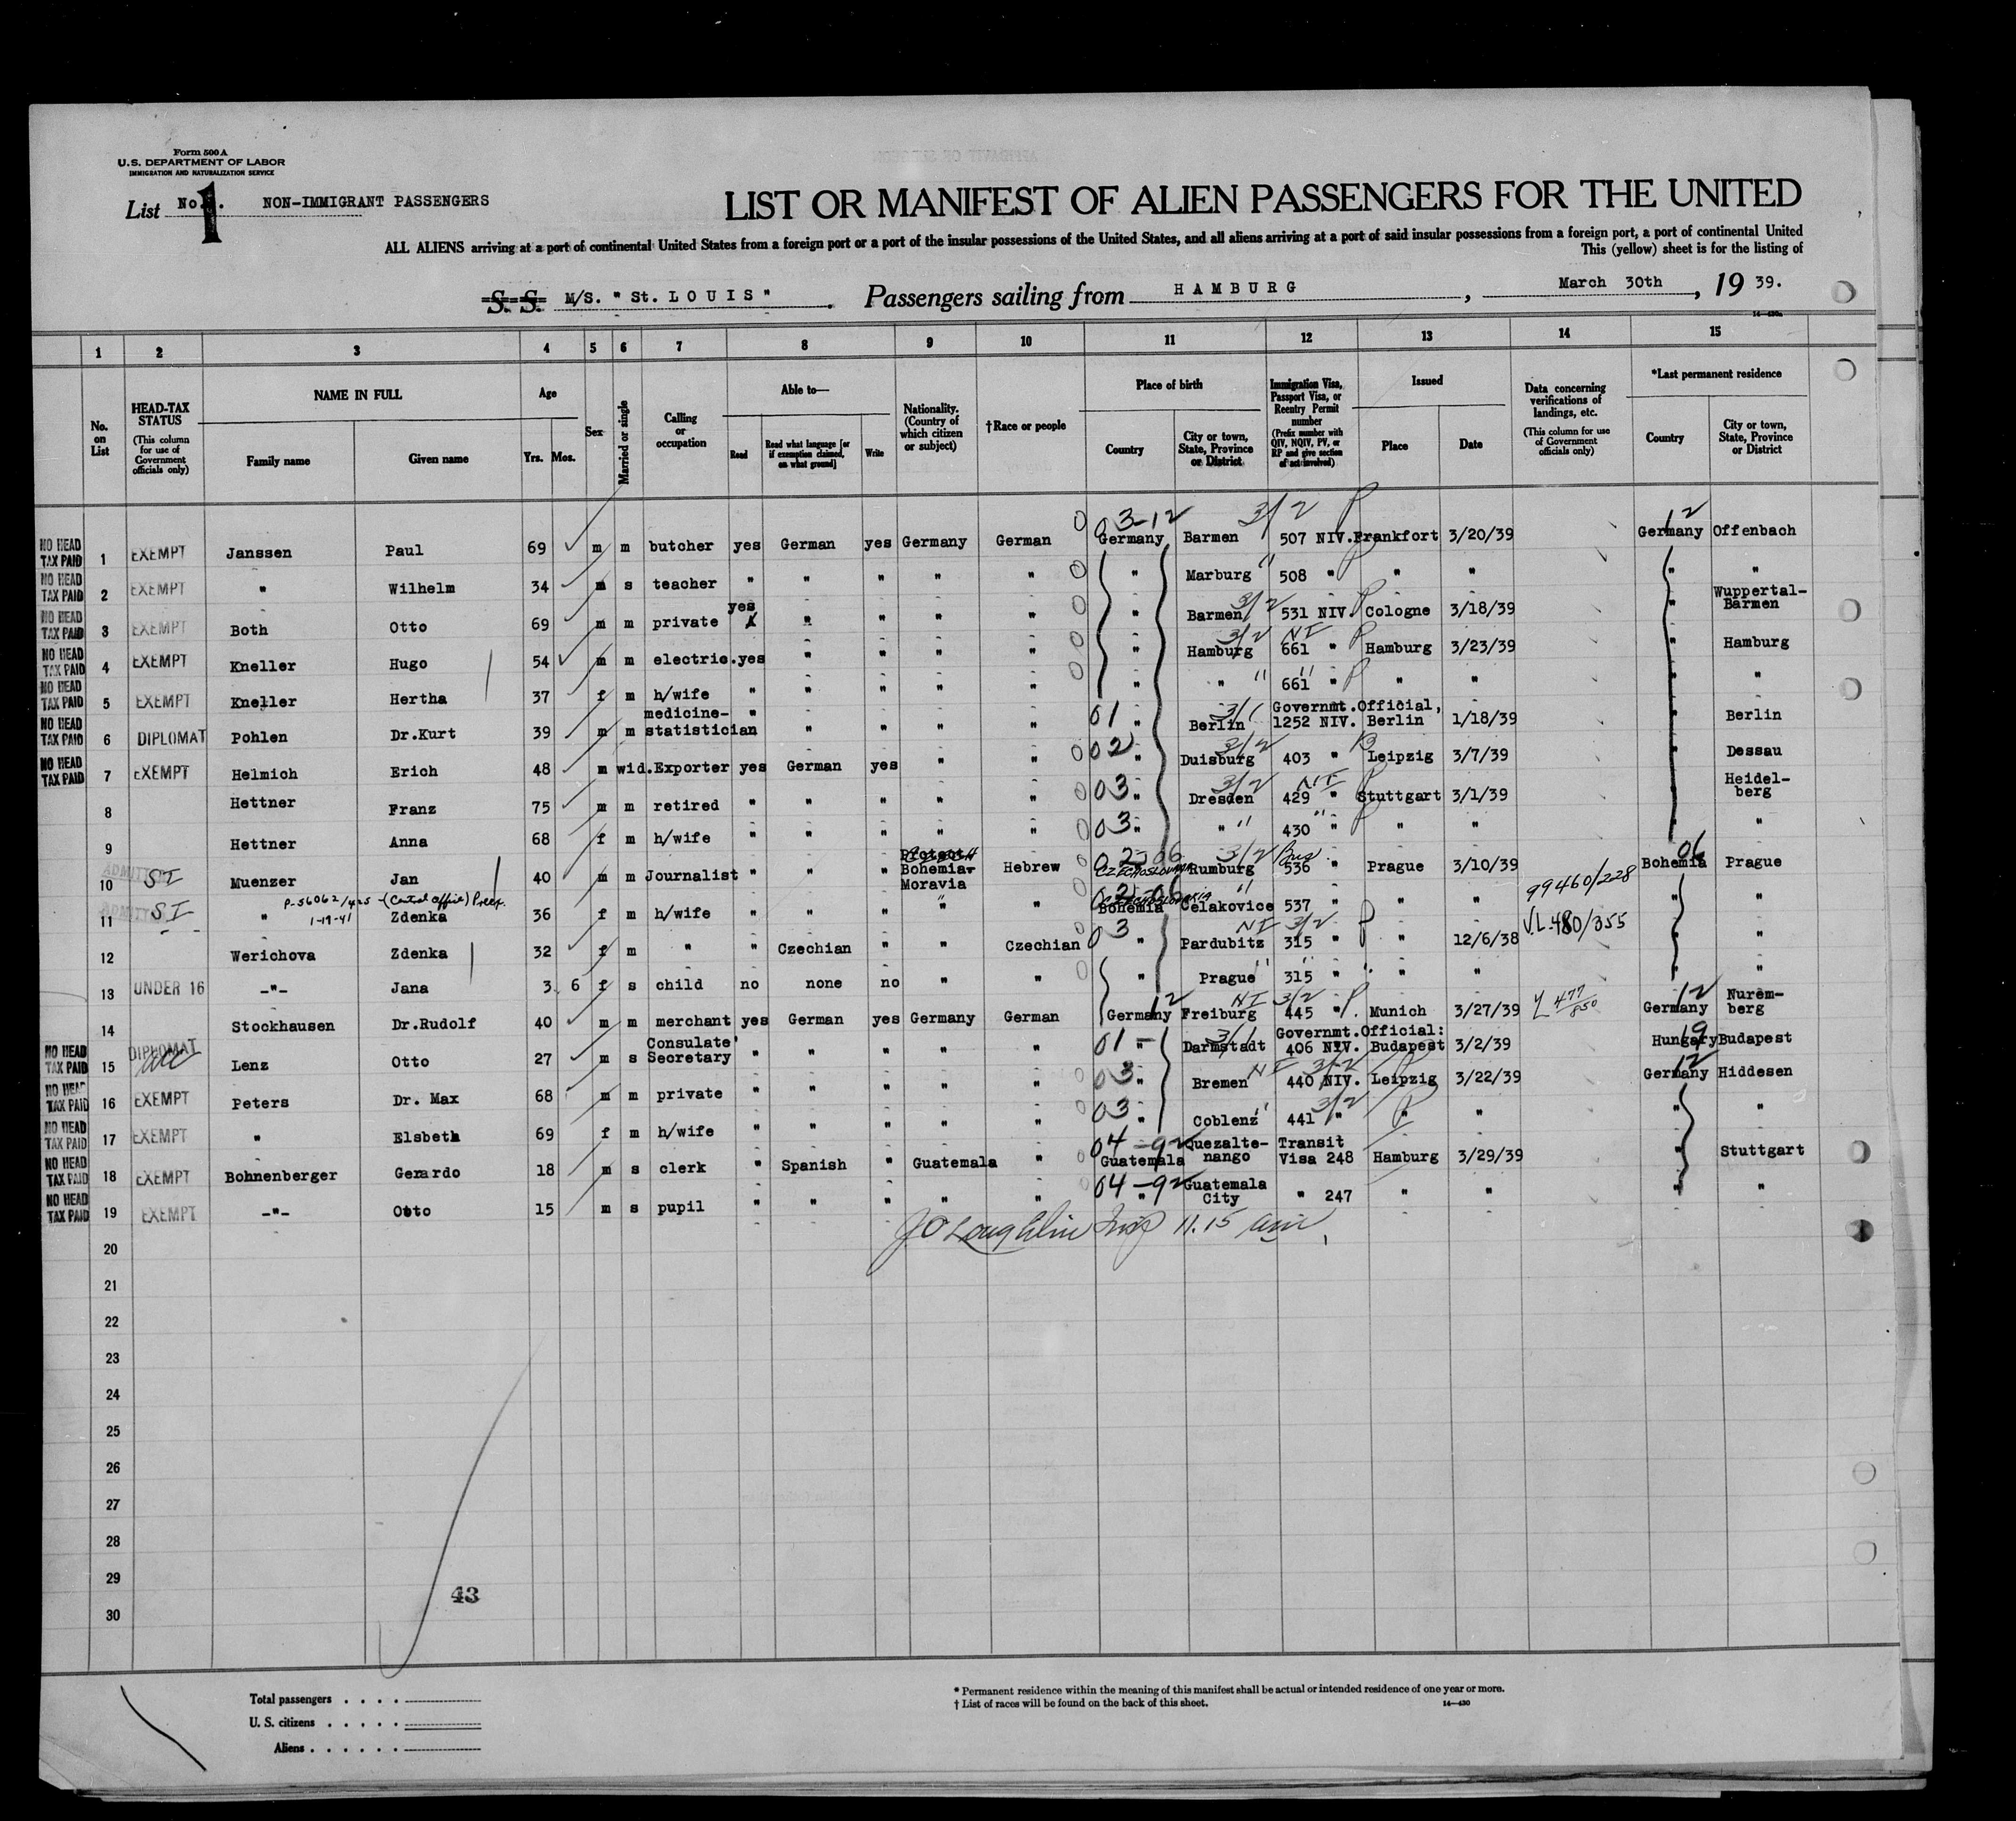 Form 500 A
U.S. DEPARTMENT OF LABOR
IMMIGRATION AND NATURALIZATION SERVICE
List No. 1 NON-IMMIGRANT PASSENGERS
LIST OR MANIFEST OF ALIEN PASSENGERS FOR THE UNITED
ALL ALIENS arriving at a port of continental United States from a foreign port or a port of the insular possessions of the United States, and all aliens arriving at a port of said insular possessions from a foreign port, a port of continental United
This (yellow) sheet is for the listing of
S. S. M/S. "St. LOUIS" . Passengers sailing from HAMBURG , March 30th , 19 39.
14—430a
1 2 3 4 5 6 7 8 9 10 11 12 13 14 15
No. on List
HEAD-TAX STATUS (This column for use of Government officials only)
NAME IN FULL Family name Given name
Age Yrs. Mos.
Sex
Married or single
Calling or occupation
Able to— Read Read what language [or if exemption claimed, on what ground] Write
Nationality. (Country of which citizen or subject)
†Race or people
Place of birth Country City or town, State, Province or District
Immigration Visa, Passport Visa, or Reentry Permit number (Prefix number with QIV, NQIV, PV, or RP and give section of act involved)
Issued Place Date
Data concerning verifications of landings, etc. (This column for use of Government officials only)
*Last permanent residence Country City or town, State, Province or District
03-12 3/2 P 12
NO HEAD TAX PAID 1 EXEMPT Janssen Paul 69 m m butcher yes German yes Germany German Germany Barmen 507 NIV. Frankfort 3/20/39 Germany Offenbach
NO HEAD TAX PAID 2 EXEMPT " Wilhelm 34 m s teacher " " " " " " Marburg 508 " " " " "
NO HEAD TAX PAID 3 EXEMPT Both Otto 69 m m private yes " " " " " Barmen 3/2 531 NIV. Cologne 3/18/39 " Wuppertal-Barmen
NO HEAD TAX PAID 4 EXEMPT Kneller Hugo 54 m m electric. yes " " " " " Hamburg 3/2 NI 661 " Hamburg 3/23/39 " Hamburg
NO HEAD TAX PAID 5 EXEMPT Kneller Hertha 37 f m h/wife " " " " " " " 661 " " " " "
NO HEAD TAX PAID 6 DIPLOMAT Pohlen Dr.Kurt 39 m m medicine-statistician " " " " " 01 " Berlin 3/1 Governmt.Official, 1252 NIV. Berlin 1/18/39 " Berlin
NO HEAD TAX PAID 7 EXEMPT Helmich Erich 48 m wid. Exporter yes German yes " " 02 " Duisburg 3/2 403 " Leipzig 3/7/39 " Dessau
8 Hettner Franz 75 m m retired " " " " " 03 " Dresden 3/2 NI 429 " Stuttgart 3/1/39 " Heidel-berg
9 Hettner Anna 68 f m h/wife " " " " " 03 " " 430 " " " " "
ADMITTED 10 SI Muenzer Jan 40 m m Journalist " " " Bohemia-Moravia Hebrew 02-06 CZECHOSLOVAKIA Rumburg 3/2 536 " Prague 3/10/39 Bohemia 06 Prague
P-56062/425 - (Central Office) Preex. 1-19-41
99460/228
ADMITTED 11 SI " Zdenka 36 f m h/wife " " " " " 02-06 Bohemia Celakovice 537 " " " " "
V.L.480/355
12 Werichova Zdenka 32 f m " " Czechian " " Czechian 03 " Pardubitz NI 3/2 315 " " 12/6/38 " "
13 UNDER 16 -"- Jana 3 6 f s child no none no " " " Prague 315 " " " " "
14 Stockhausen Dr.Rudolf 40 m m merchant yes German yes Germany German Germany 12 Freiburg NI 3/2 445 " Munich 3/27/39 477/850 Germany 12 Nurem-berg
NO HEAD TAX PAID 15 DIPLOMAT Lenz Otto 27 m s Consulate' Secretary " " " " " 01 - " Darmstadt 3/1 Governmt.Official: 406 NIV. Budapest 3/2/39 Hungary 19 Budapest
NO HEAD TAX PAID 16 EXEMPT Peters Dr. Max 68 m m private " " " " " 03 " Bremen NI 3/2 440 NIV. Leipzig 3/22/39 Germany 12 Hiddesen
NO HEAD TAX PAID 17 EXEMPT " Elsbeth 69 f m h/wife " " " " " 03 " Coblenz 441 " 3/2 " " " "
NO HEAD TAX PAID 18 EXEMPT Bohnenberger Gerardo 18 m s clerk " Spanish " Guatemala " 04-92 Guatemala Quezalte-nango Transit Visa 248 Hamburg 3/29/39 " Stuttgart
NO HEAD TAX PAID 19 EXEMPT -"- Otto 15 m s pupil " " " " " 04-92 " Guatemala City " 247 " " " "
J O Loughlin Insp 11.15 am
20
21
22
23
24
25
26
27
28
29
30
43
Total passengers . . . .
U. S. citizens . . . . .
Aliens . . . . . .
* Permanent residence within the meaning of this manifest shall be actual or intended residence of one year or more.
† List of races will be found on the back of this sheet.
14—430